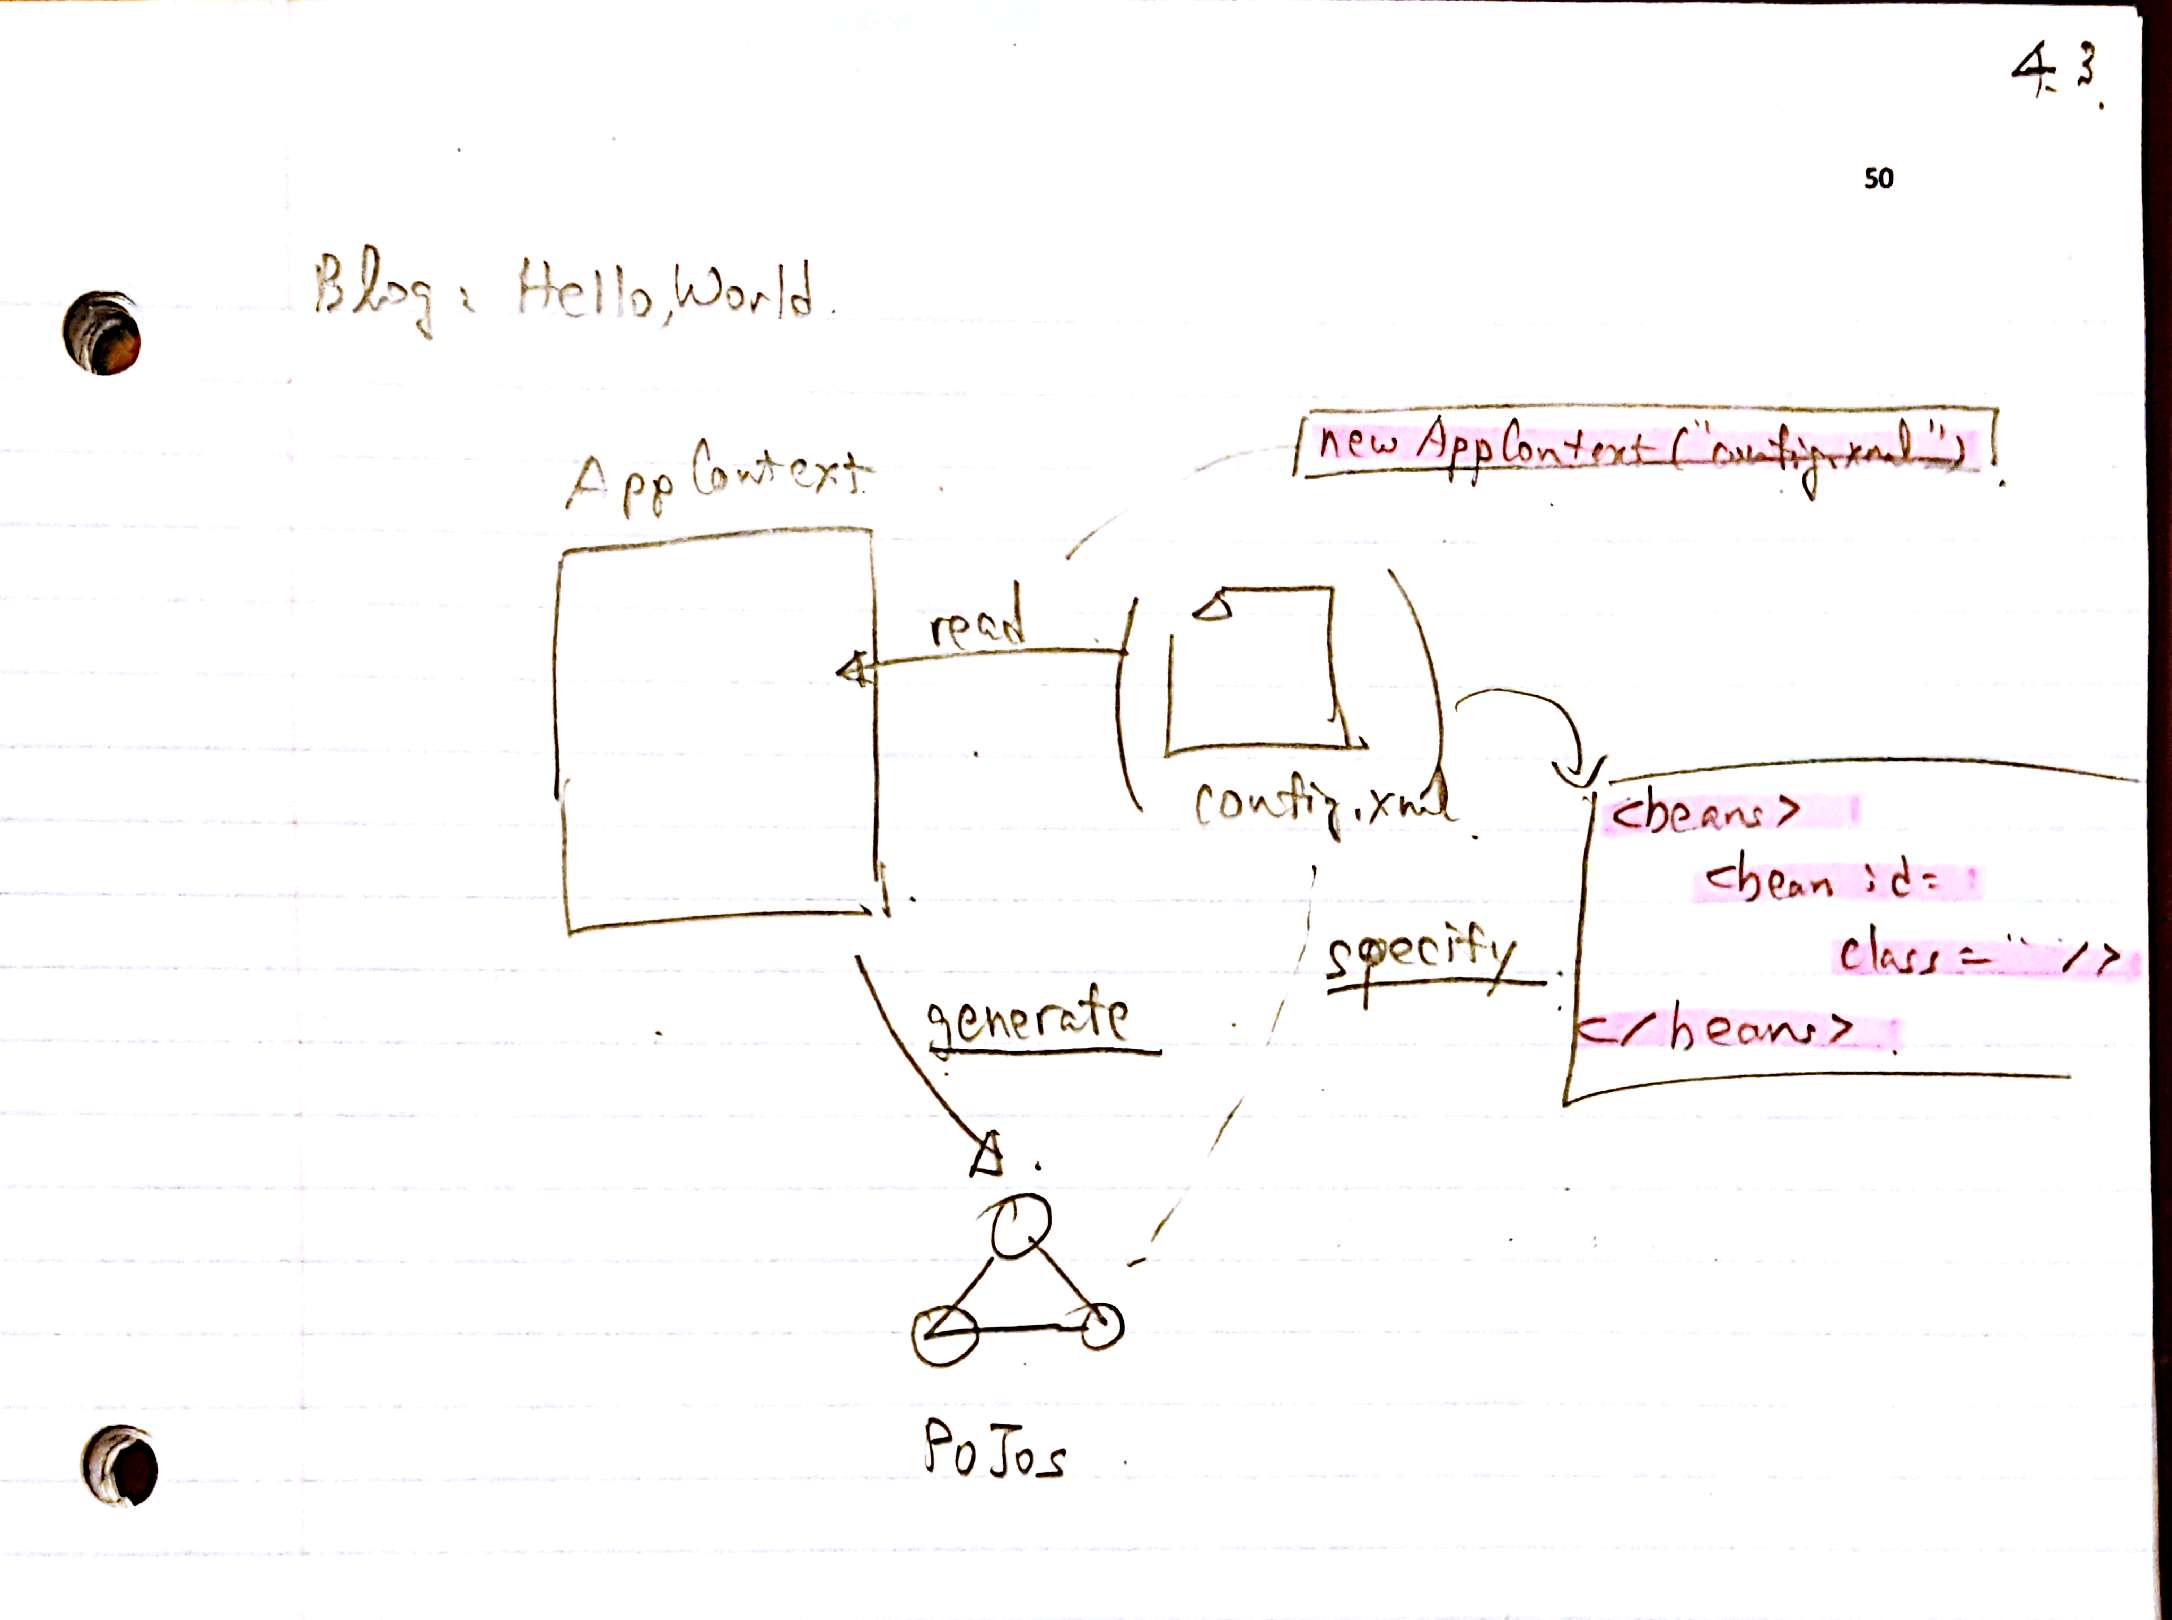 43.
50
Blog: Hello, World.
new AppContext("config.xml")
AppContext
read
config.xml
<beans>
<bean id=
class="" />
</beans>
specify
generate
PoJos